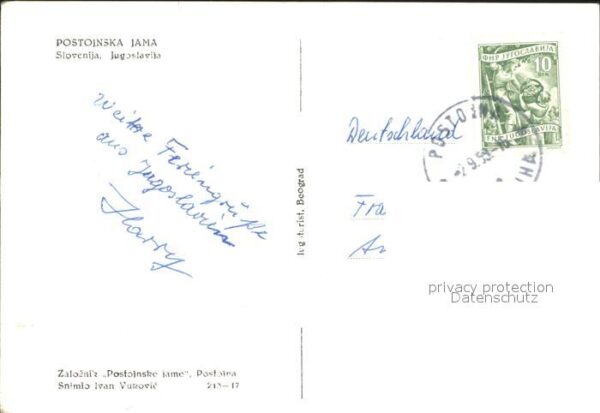 POSTOJNSKA JAMA
Slovenija, Jugoslavija
Weitere Feriengrüße
aus Jugoslawien
Harry
Založnik „Postojnske jame", Postojna
Snimio Ivan Vuković 213-17
Jugoturist, Beograd
10
DIN
ФНР ЈУГОСЛАВИЈА
FNR JUGOSLAVIJA
POSTOJNA
Deutschland
Fra
An
privacy protection
Datenschutz